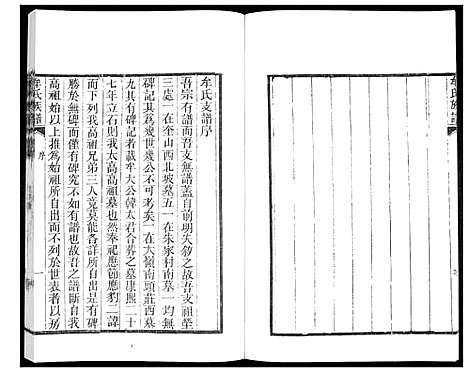 牟氏支譜序
吾宗有譜而吾支無譜蓋自前明失敘之故吾支祖塋
三處一在奎山西北坡墓五一在朱家村南墓一均無
碑記其為幾世幾公不可考矣一在大嶺南頭莊西墓
九具有碑記者載牟大公韓太君合葬之墓康熙二十
七年立石則我太高高祖墓也然奉祀應節應豹二諱
而下列我高祖兄弟三人竟莫能各詳所自出是有碑
勝於無碑而僅有碑究不如有譜也故吾之譜斷自我
高祖始以上推為始祖所自出而不列於世表者以別
牟氏族譜
序
一
牟氏族譜